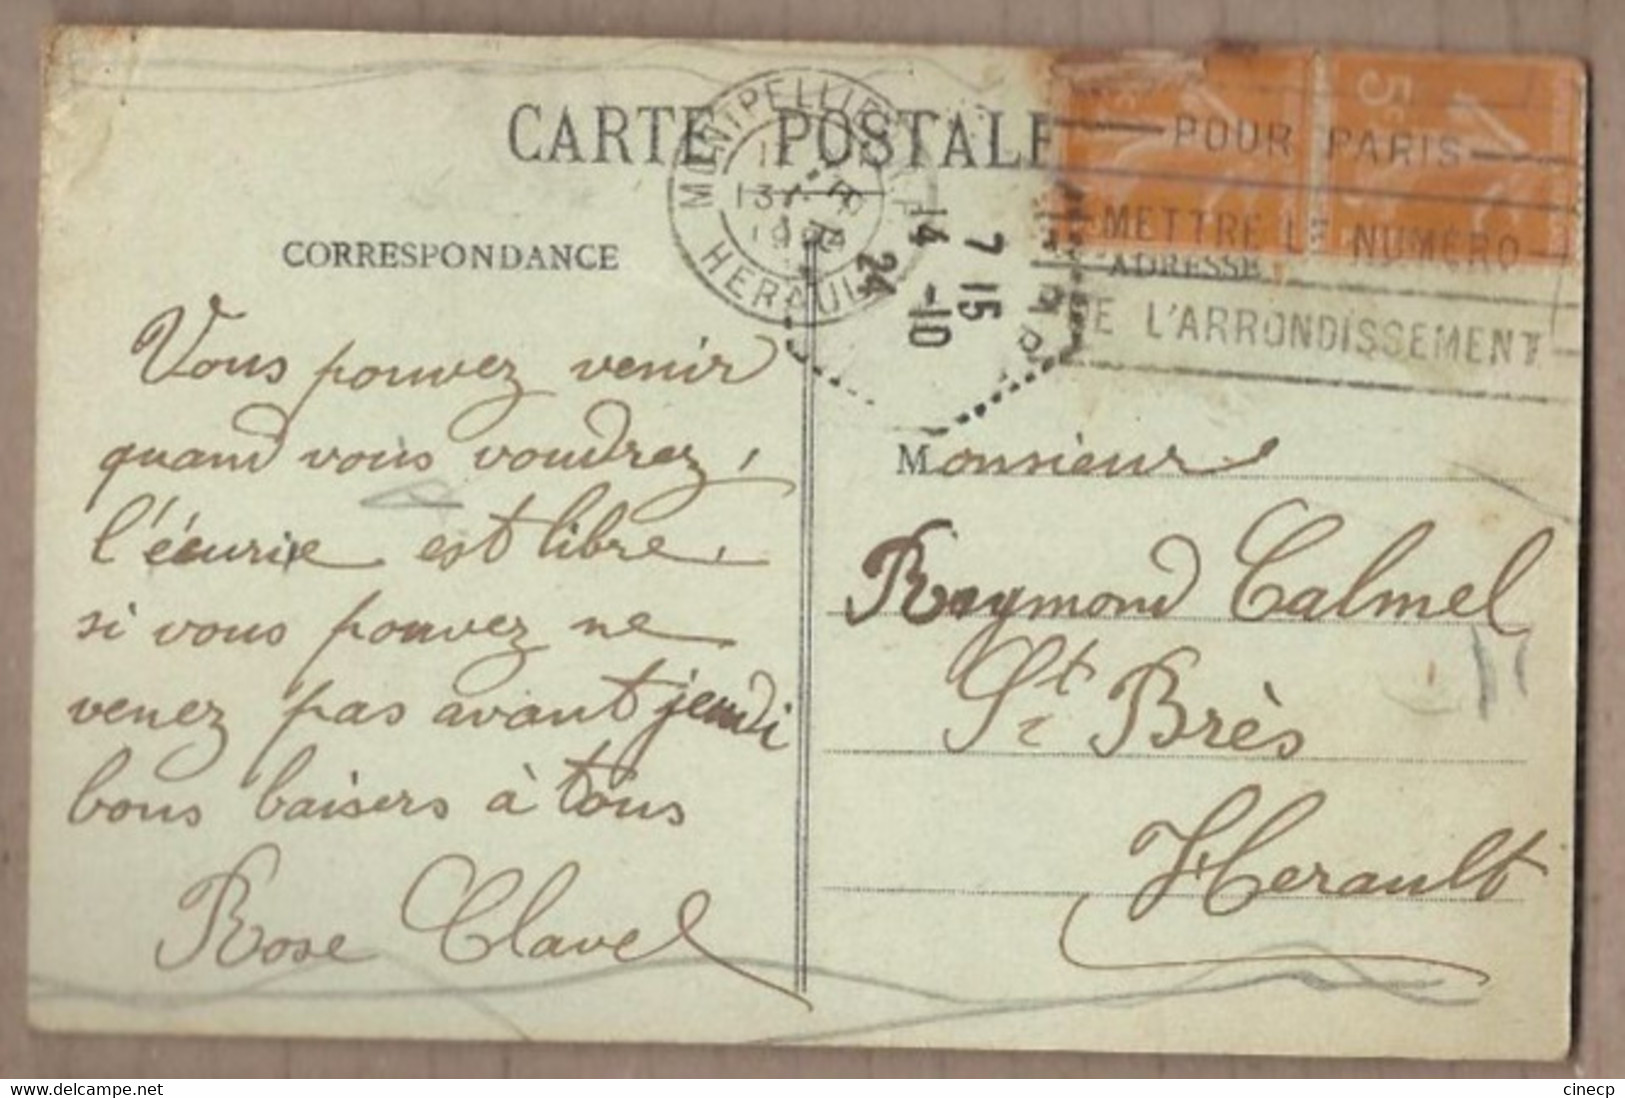 CARTE POSTALE
CORRESPONDANCE
ADRESSE
MONTPELLIER
HERAULT
14-10
24
7 15
POUR PARIS
METTRE LE NUMÉRO
DE L'ARRONDISSEMENT
5c
Vous pouvez venir
quand vous voudrez,
l'écurie est libre,
si vous pouvez ne
venez pas avant jeudi
bons baisers à tous
Rose Clavel
Monsieur
Raymond Calmel
St Brès
Herault
www.delcampe.net
cinecp